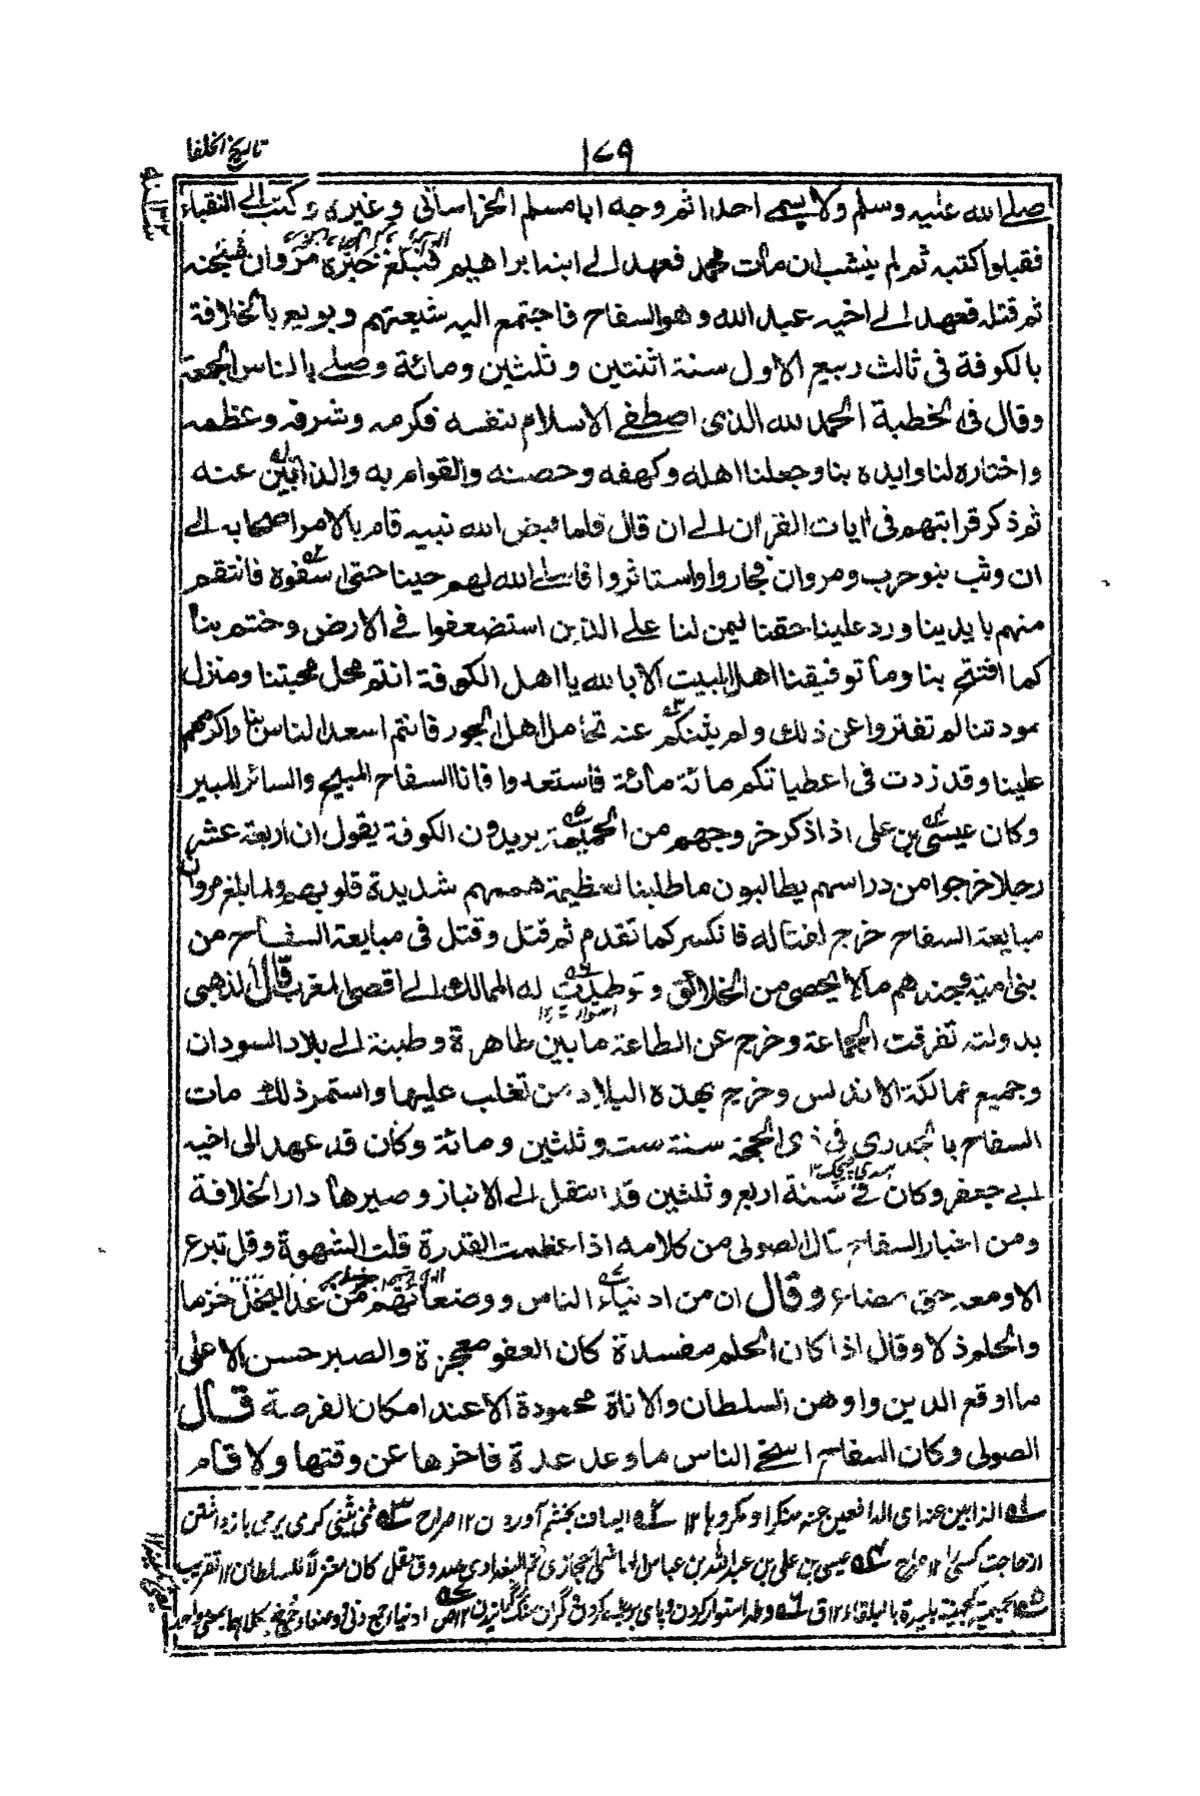 تاريخ الخلفا
١٧٩
صلے الله عليه وسلم ولا يسمے احدا ثم وجه ابا مسلم الخراسانی وغيره وكتب الے النقباء
فقبلوا كتبه ثم لم ينشب ان مات محمد فعهد الے ابنه ابراهيم فبلغ خبره مروان فسجنه
ثم قتله فعهد الے اخيه عبد الله وهو السفاح فاجتمع اليه شيعتهم وبويع بالخلافة
بالكوفة فی ثالث ربيع الاول سنة اثنتين وثلثين ومائة وصلے بالناس الجمعة
وقال فی الخطبة الحمد لله الذی اصطفے الاسلام لنفسه فكرمه وشرفه وعظمه
واختاره لنا وايده بنا وجعلنا اهله وكهفه وحصنه والقوام به والذابين عنه
ثم ذكر قرابتهم فی ايات القران الے ان قال فلما قبض الله نبيه قام بالامر اصحابه الے
ان وثب بنو حرب ومروان فجاروا واستاثروا فاملے الله لهم حينا حتی اسفوه فانتقم
منهم بايدينا ورد علينا حقنا ليمن لنا علے الذين استضعفوا فے الارض وختم بنا
كما افتتح بنا وما توفيقنا اهل البيت الا بالله يا اهل الكوفة انتم محل محبتنا ومنزل
مودتنا لم تفتروا عن ذلك ولم يثنكم عنه تحامل اهل الجور فانتم اسعد الناس بنا واكرمهم
علينا وقد زدت فی اعطياتكم مائة مائة فاستعدوا فانا السفاح المبيح والسائر المبير
وكان عيسی بن علی اذا ذكر خروجهم من الحميمة يريدون الكوفة يقول ان اربعة عشر
رجلا خرجوا من دراسهم يطالبون ما طلبنا لعظيمة هممهم شديدة قلوبهم ولما بلغ مروان
مبايعة السفاح خرج لقتاله فانكسر كما تقدم ثم قتل وقتل فی مبايعة السفاح من
بنی امية وجندهم ما لا يحصی من الخلائق وتوطدت له الممالك الے اقصی المغرب قال الذهبی
بدولته تفرقت الجماعة وخرج عن الطاعة ما بين طاهرة وطبنة الے بلاد السودان
وجميع ممالكة الاندلس وخرج بهذه البلاد من تغلب عليها واستمر ذلك مات
السفاح بالجدری فی ذی الحجة سنة ست وثلثين ومائة وكان قد عهد الی اخيه
ابے جعفر وكان فے سنة اربع وثلثين قد انتقل الے الانبار وصيرها دار الخلافة
ومن اخبار السفاح قال الصولی من كلامه اذا عظمت القدرة قلت الشهوة وقل تبرع
الا ومعه حق مضاع وقال ان من ادنياء الناس ووضعائهم من عد البخل حزما
والحلم ذلا وقال اذا كان الحلم مفسدة كان العفو معجزة والصبر حسن الا علی
ما اوقع الدين واوهن السلطان والاناة محمودة الا عند امكان الفرصة قال
الصولی وكان السفاح اسخے الناس ما وعد عدة فاخرها عن وقتها ولا قام
الذابين عنه ای الدافعين عنه منكرا ومكروها ١٢ ايساف بخشم آوردن ١٢ صراح ثنی
ازحاجت كسی را ١٢ صراح عيسی بن علی بن عبد الله بن عباس الهاشمی الحجازی ثم البغدادی صدوق مقل كان معتزلا للسلطان ١٢ تقريب
حميمة كجهينة بليدة بالبلقاء ١٢ ق وطد استوار كردن